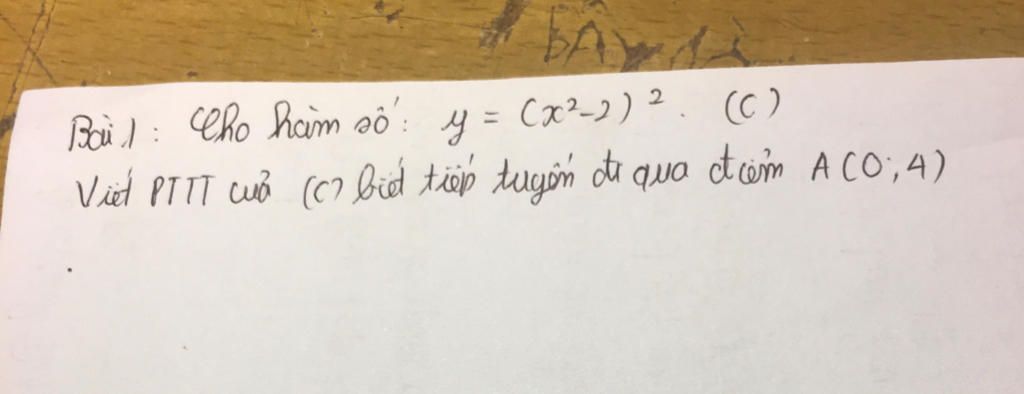 Bài 1: Cho hàm số: y = (x²-2)². (C)
Viết PTTT của (C) biết tiếp tuyến đi qua điểm A(0;4)